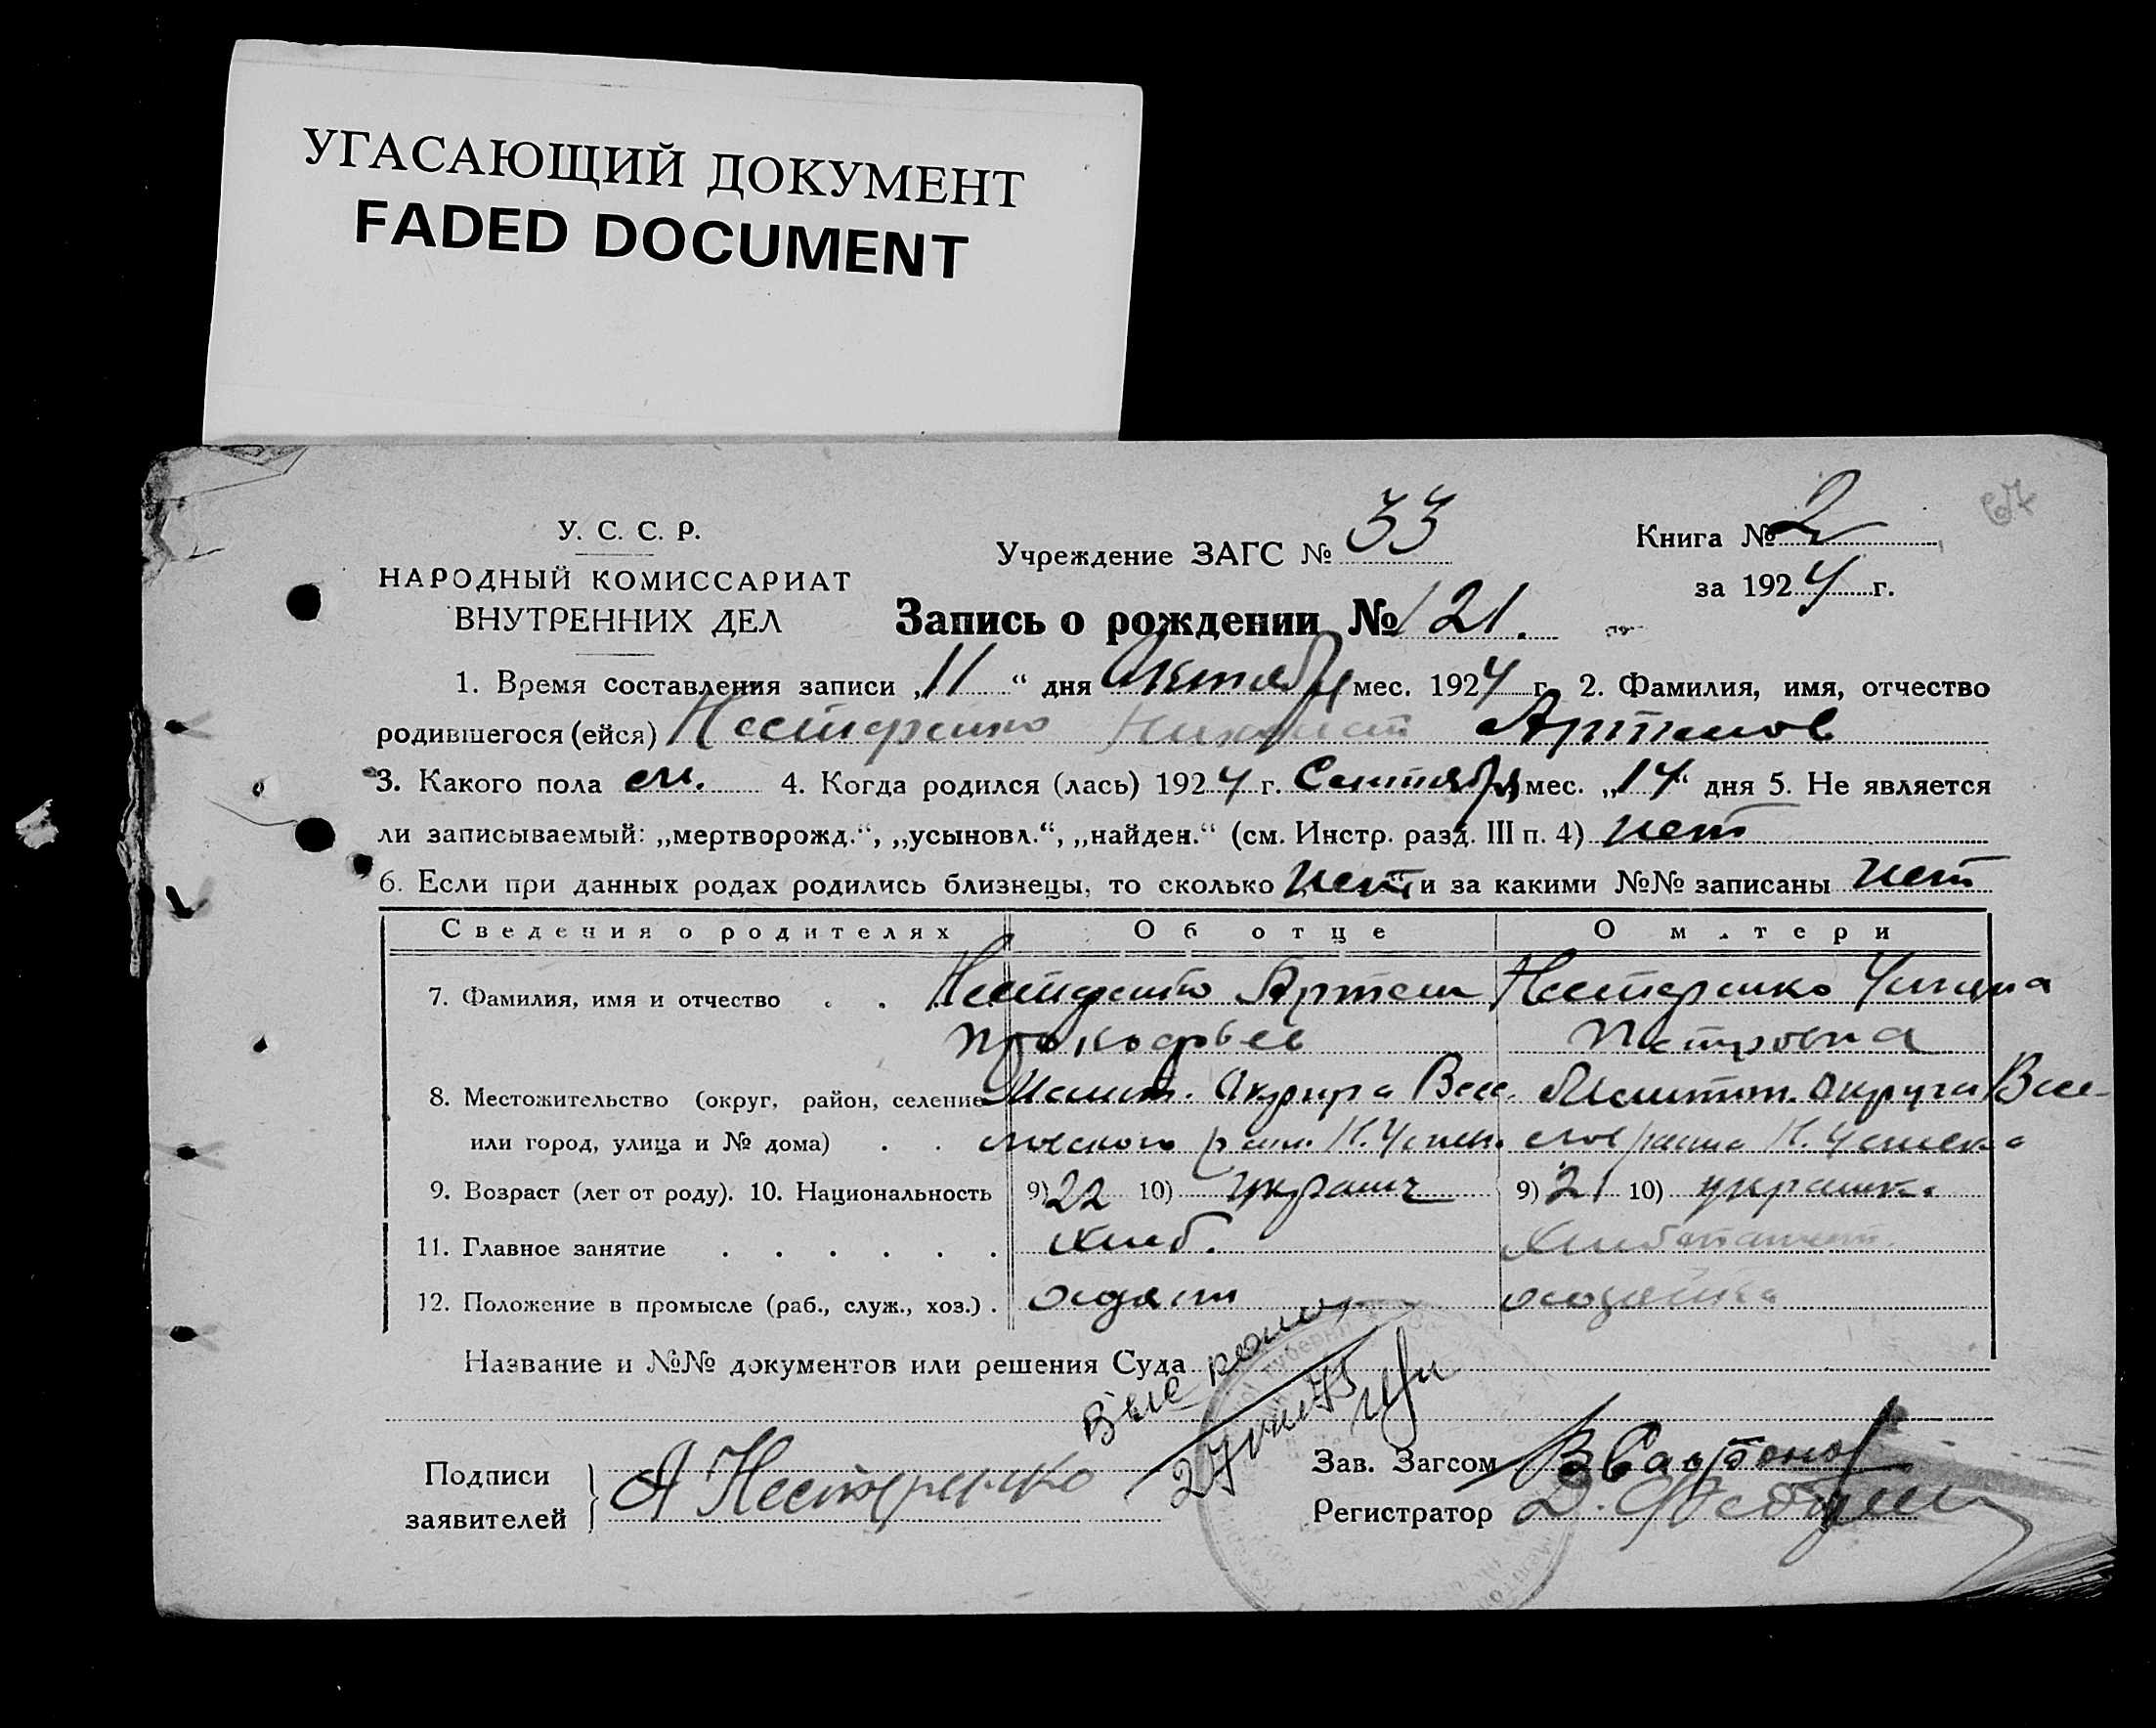 УГАСАЮЩИЙ ДОКУМЕНТ
FADED DOCUMENT
У. С. С. Р.
НАРОДНЫЙ КОМИССАРИАТ
ВНУТРЕННИХ ДЕЛ
Учреждение ЗАГС № 33
Книга № 2
за 1924 г.
Запись о рождении № 121.
1. Время составления записи „11“ дня Октября мес. 1924 г. 2. Фамилия, имя, отчество
родившегося (ейся) Нестеренко Артемов
3. Какого пола м. 4. Когда родился (лась) 1924 г. Сентября мес. „14“ дня 5. Не является
ли записываемый: „мертворожд.“, „усыновл.“, „найден.“ (см. Инстр. разд. III п. 4) нет
6. Если при данных родах родились близнецы, то сколько нет и за какими №№ записаны нет
Сведения о родителях Об отце О матери
7. Фамилия, имя и отчество . . Нестеренко Артем Нестеренко
Прокофьев Петровна
8. Местожительство (округ, район, селение Мелит. Округа Весе- Мелитоп. Округа Весе-
или город, улица и № дома) . . ловского
9. Возраст (лет от роду). 10. Национальность 9) 22 10) украин 9) 21 10) украинка
11. Главное занятие . . . . . . Хлеб.
12. Положение в промысле (раб., служ., хоз.) .
Название и №№ документов или решения Суда
Подписи
заявителей А Нестеренко
Зав. Загсом
Регистратор